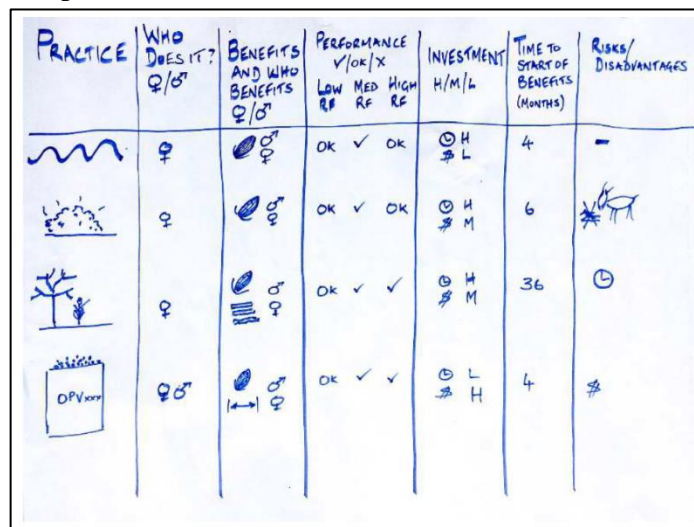 PRACTICE WHO DOES IT? ♀/♂ BENEFITS AND WHO BENEFITS ♀/♂ PERFORMANCE ✓/OK/X LOW RF MED RF HIGH RF INVESTMENT H/M/L TIME TO START OF BENEFITS (MONTHS) RISKS/ DISADVANTAGES
♀ ♂ ♀ OK ✓ OK H $ L 4 -
♀ ♂ ♀ OK ✓ OK H $ M 6
♀ ♂ ♀ OK ✓ ✓ H $ M 36
OPVxxx ♀♂ ♂ ♀ OK ✓ ✓ L $ H 4 $